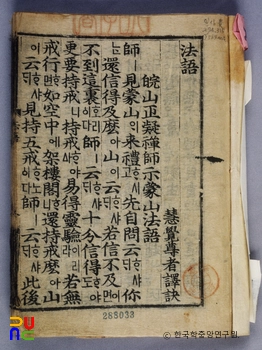 法語
慧覺尊者譯訣
皖山正凝禪師示蒙山法語
師ㅣ見蒙山의來禮ᄒᆞ시고先自問云ᄒᆞ샤ᄃᆡ你
還信得及麽아山이云ᄒᆞ샤ᄃᆡ若信不及
不到這裏호리이다師ㅣ云ᄒᆞ샤ᄃᆡ十分信得ᄒᆞ야도
更要持戒니持戒ᄒᆞ야ᅀᅡ易得靈驗ᄒᆞ리라若無
戒行ᄒᆞ면如空中에架樓閣이니還持戒麽아山이
云ᄒᆞ샤ᄃᆡ見持五戒ᄒᆞ노이다師ㅣ云ᄒᆞ샤ᄃᆡ此後
288033
한국학중앙연구원